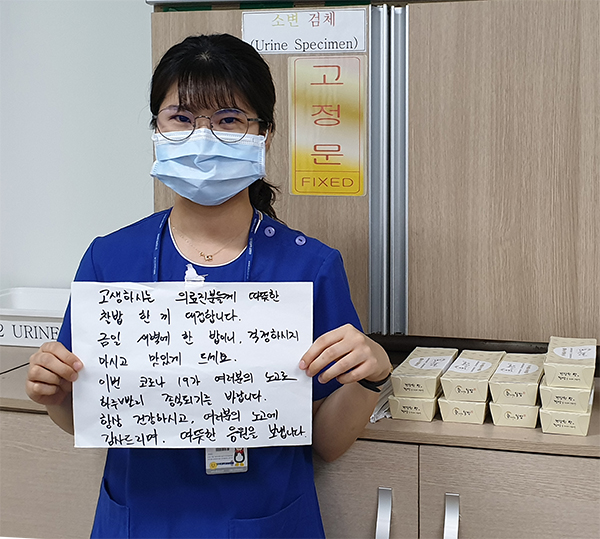 소변 검체
(Urine Specimen)
고
정
문
FIXED
2 URINE
고생하시는 의료진분들게 따뜻한
찬밥 한 끼 대접합니다.
금일 새벽에 한 밥이니, 걱정하시지
마시고 맛있게 드세요.
이번 코로나 19가 여러분의 노고로
하루빨리 종식되기를 바랍니다.
항상 건강하시고, 여러분의 노고에
감사드리며, 따뜻한 응원을 보냅니다.